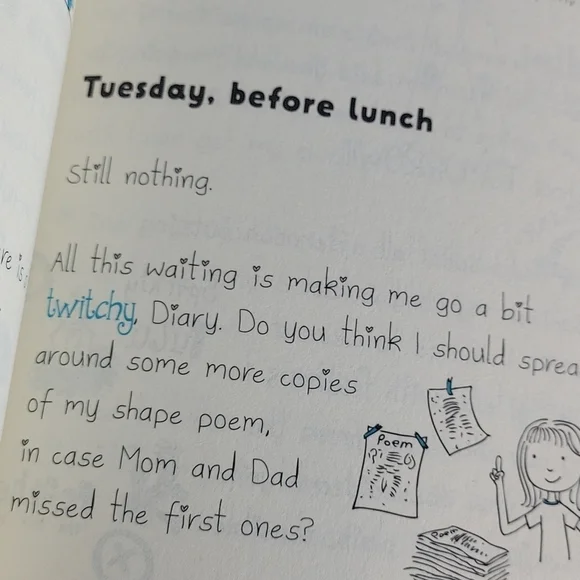 Tuesday, before lunch
Still nothing.
All this waiting is making me go a bit
twitchy, Diary. Do you think I should sprea
around some more copies
of my shape poem,
in case Mom and Dad
missed the first ones?
Poem